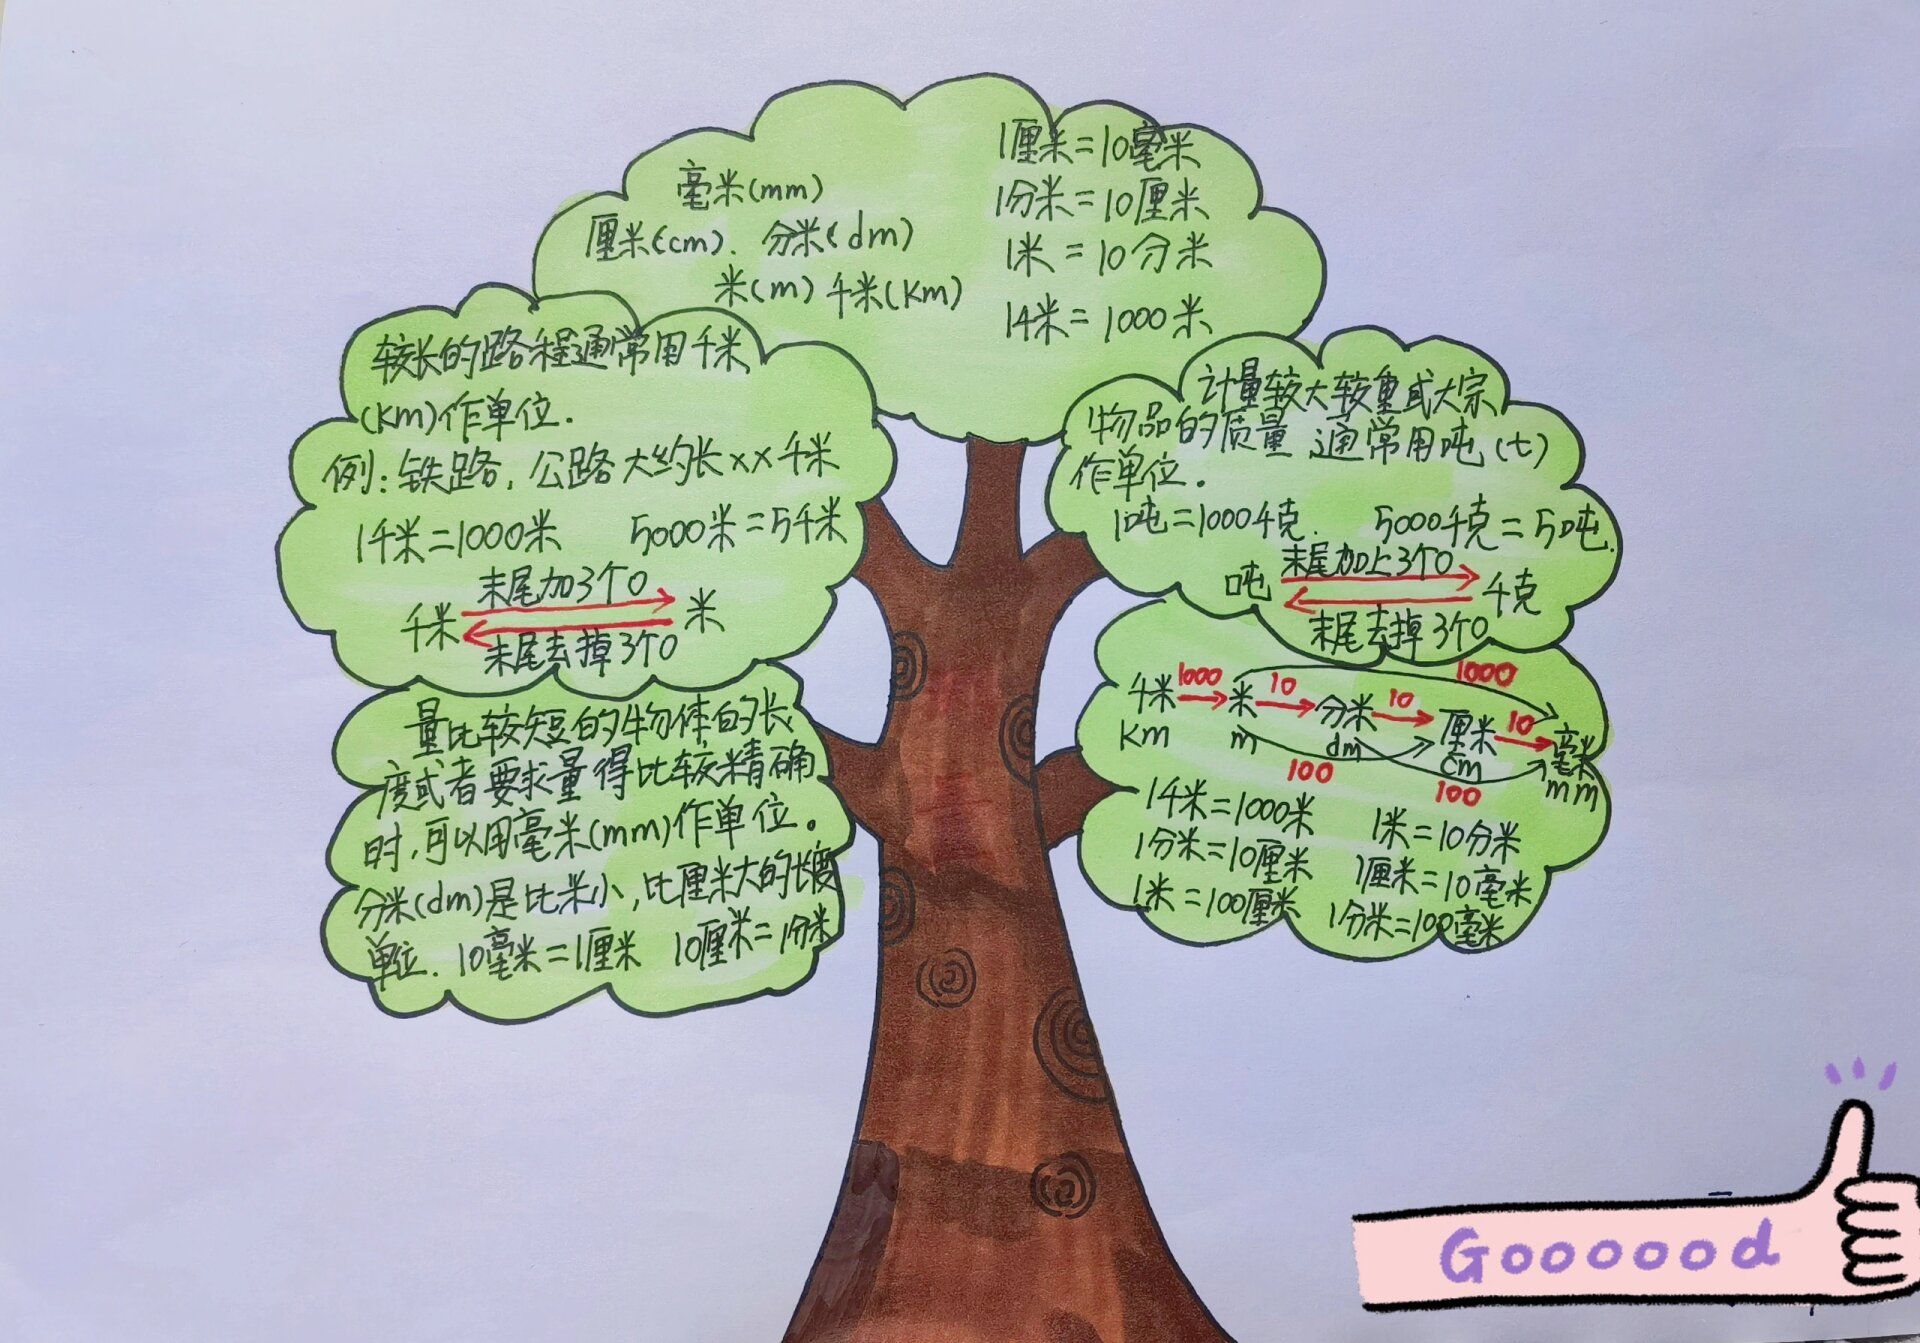 毫米(mm)
厘米(cm). 分米(dm)
米(m) 千米(Km)
1厘米=10毫米
1分米=10厘米
1米=10分米
1千米=1000米
较长的路程通常用千米
(Km)作单位.
例:铁路,公路大约长××千米
1千米=1000米 5000米=5千米
末尾加3个0
千米 米
末尾去掉3个0
计量较大较重或大宗
物品的质量 通常用吨(t)
作单位.
1吨=1000千克. 5000千克=5吨.
末尾加上3个0
吨 千克
末尾去掉3个0
量比较短的物体的长
度或者要求量得比较精确
时,可以用毫米(mm)作单位。
分米(dm)是比米小,比厘米大的长度
单位. 10毫米=1厘米 10厘米=1分米
1000
千米 1000 米 10 分米 10 厘米 10 毫米
Km m dm cm mm
100 100
1千米=1000米 1米=10分米
1分米=10厘米 1厘米=10毫米
1米=100厘米 1分米=100毫米
Goooood